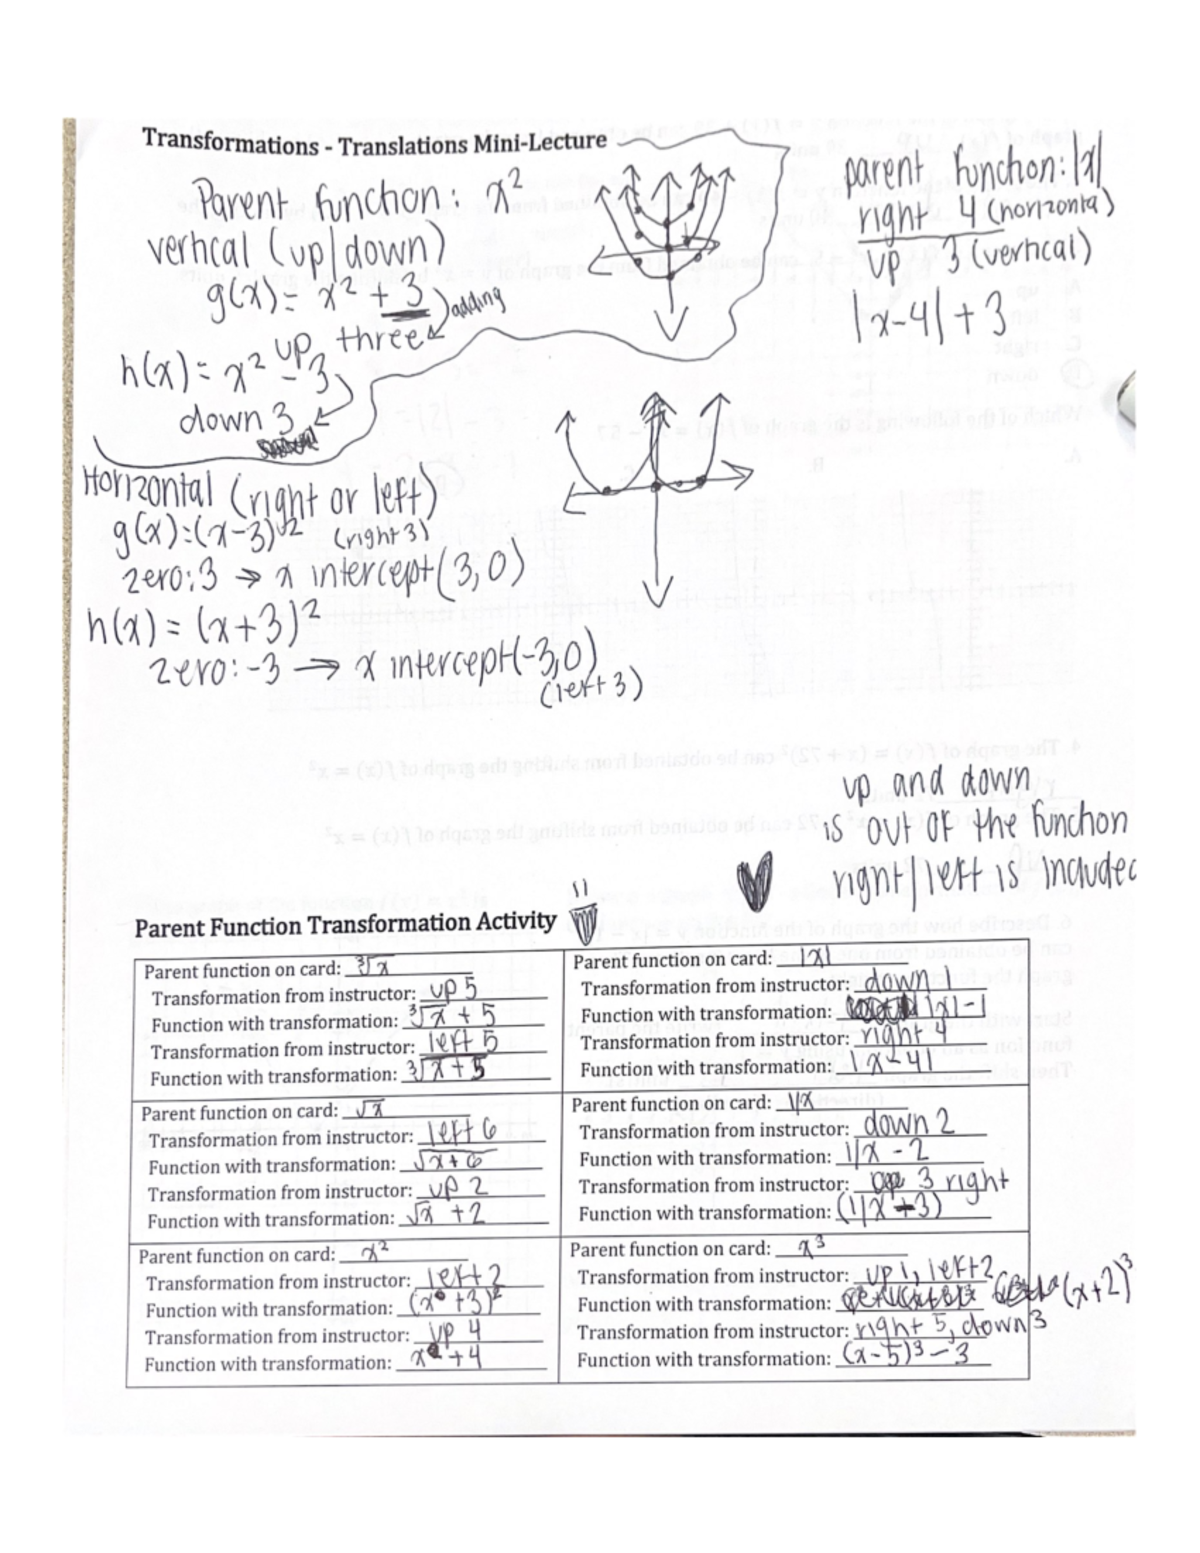 Transformations - Translations Mini-Lecture
Parent function: x²
vertical (up/down)
g(x) = x² + 3
adding
up three
h(x) = x² - 3
down 3
parent function: |x|
right 4 (horizonta)
up 3 (vertical)
|x-4| + 3
Horizontal (right or left)
g(x) = (x-3)² (right 3)
zero: 3 → x intercept (3,0)
h(x) = (x+3)²
zero: -3 → x intercept (-3,0)
(left 3)
up and down
is out of the function
right/left is included
Parent Function Transformation Activity
Parent function on card: ∛x
Transformation from instructor: up 5
Function with transformation: ∛x + 5
Transformation from instructor: left 5
Function with transformation: ∛x+5
Parent function on card: |x|
Transformation from instructor: down 1
Function with transformation: |x|-1
Transformation from instructor: right 4
Function with transformation: |x-4|
Parent function on card: √x
Transformation from instructor: left 6
Function with transformation: √x+6
Transformation from instructor: up 2
Function with transformation: √x +2
Parent function on card: 1/x
Transformation from instructor: down 2
Function with transformation: 1/x - 2
Transformation from instructor: 3 right
Function with transformation: (1/x +3)
Parent function on card: x²
Transformation from instructor: left 2
Function with transformation: (x +3)²
Transformation from instructor: up 4
Function with transformation: x² +4
Parent function on card: x³
Transformation from instructor: up 1, left 2
Function with transformation: (x+2)³
Transformation from instructor: right 5, down 3
Function with transformation: (x-5)³ - 3